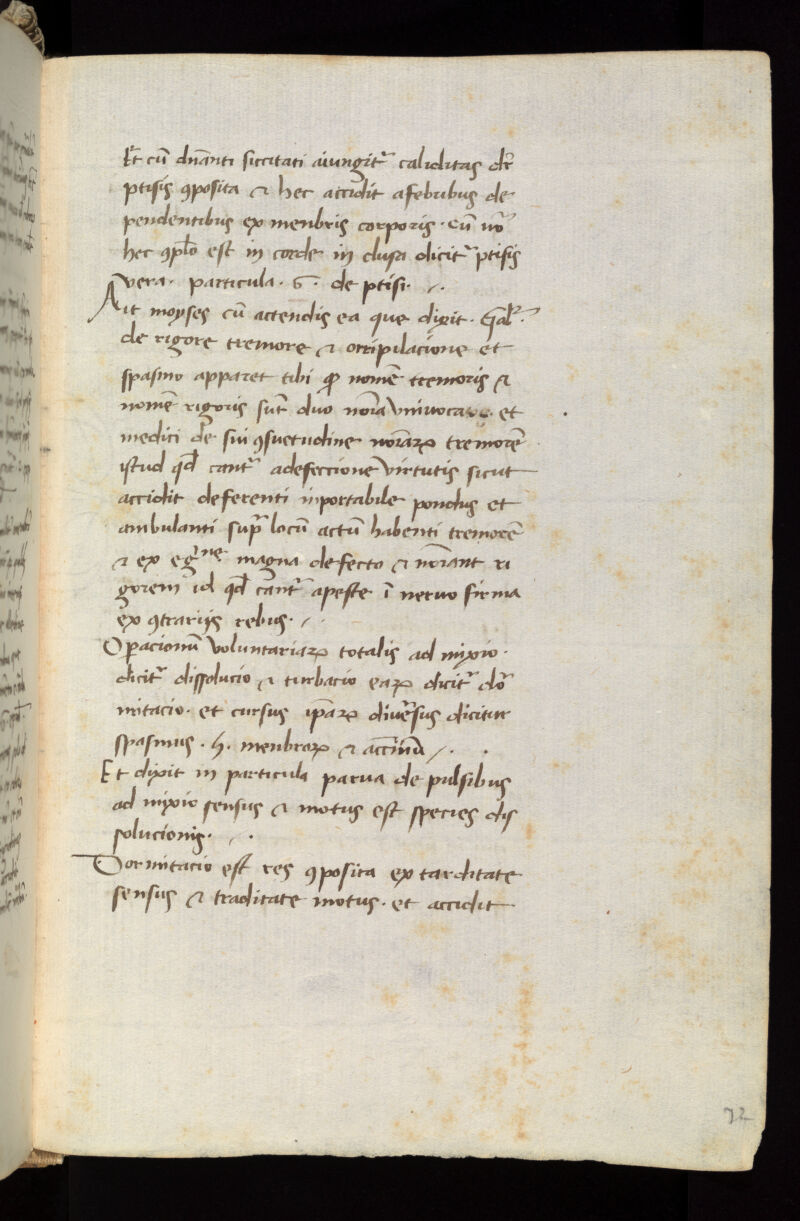 Et cū dnāanti siccitati aiungit᷑ caliditas dr̄
ptisis ꝯposita ⁊ hec accidit afebribus de
pendentibus ex menbris corporis · cū vō
hec ꝯplō est in corde in clusa dicit᷑ ptisis
vera · particula · 6 · de ptisi ·
Ait moyses cū actendis ea que dixit · Gal᷑ ·
de rigore tremore ⁊ orripilacione et
spasmo apparet tibi ꝙ nomē tremoris ⁊
nomē rigoris sūt duo noīa univoca et
medici de sui ꝯsuetudine noīaꝝ tremorē
istud qđ cantᷣ adefeccione virtutis sicut
accidit deferenti inportabile pondus et
ambulanti supᷓ locū actū habenti tremorē
⁊ ex egⁿᵉ magna defecto ⁊ noīant ri
gorem id qđ cantᷣ apeste ī nervo firma
ex ꝯtrarijs rebus ·
Oꝑacionū voluntariaꝝ totalis ad mixio ·
dicit᷑ dissolucio ⁊ turbacio eaꝝ dicit᷑ dō
mitacio · et cursus ip̄aꝝ div̄sus dicitur
spasmus · h · menbroꝝ ⁊
Et dixit in particula parva de pulsibus
ad mixio sensus ⁊ motus est species dis
solucionis ·
Dormitacio est res ꝯposita ex tarditate
sensus ⁊ traditate motus · et accidit
72